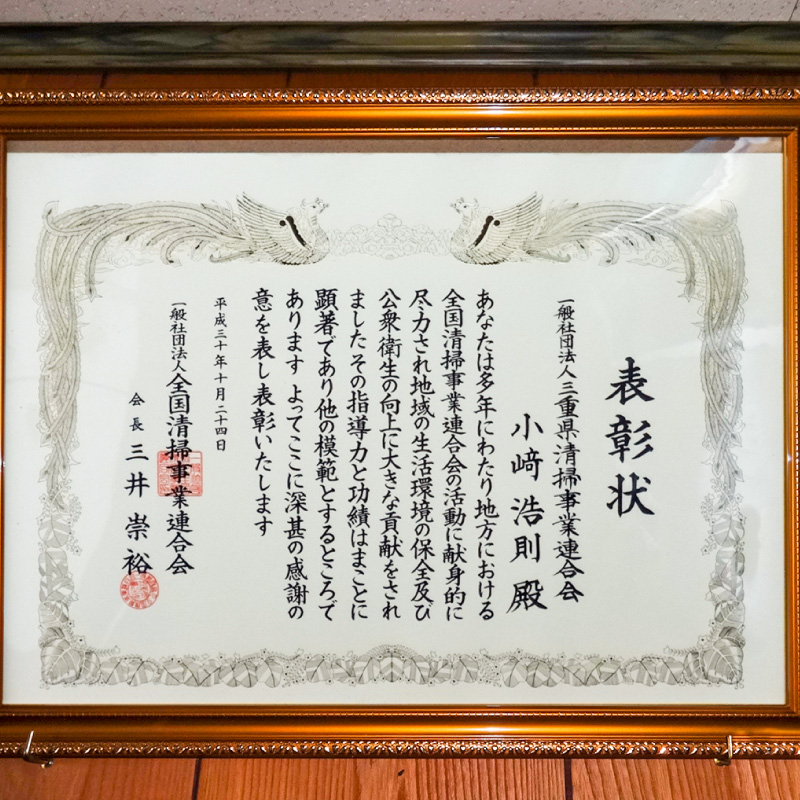 表彰状
一般社団法人三重県清掃事業連合会
小﨑浩則殿
あなたは多年にわたり地方における
全国清掃事業連合会の活動に献身的に
尽力され地域の生活環境の保全及び
公衆衛生の向上に大きな貢献をされ
ました その指導力と功績はまことに
顕著であり他の模範とするところで
あります よってここに深甚の感謝の
意を表し表彰いたします
平成三十年十月二十四日
一般社団法人全国清掃事業連合会
会長 三井崇裕